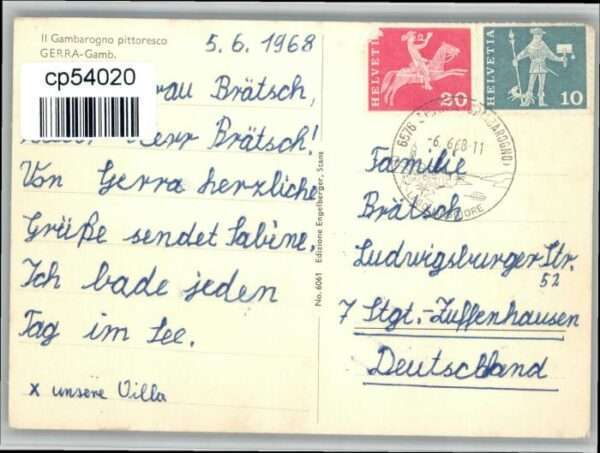 Il Gambarogno pittoresco
GERRA-Gamb.
cp54020
5.6.1968
Brätsch,
Herr Brätsch!
Von Gerra herzliche
Grüße sendet Sabine.
Ich bade jeden
Tag im See.
x unsere Villa
No. 6061 Edizione Engelberger, Stans
HELVETIA
20
HELVETIA
10
6576
-6.6.68-11
Familie
Brätsch
Ludwigsburger Str.
52
7 Stgt.-Zuffenhausen
Deutschland